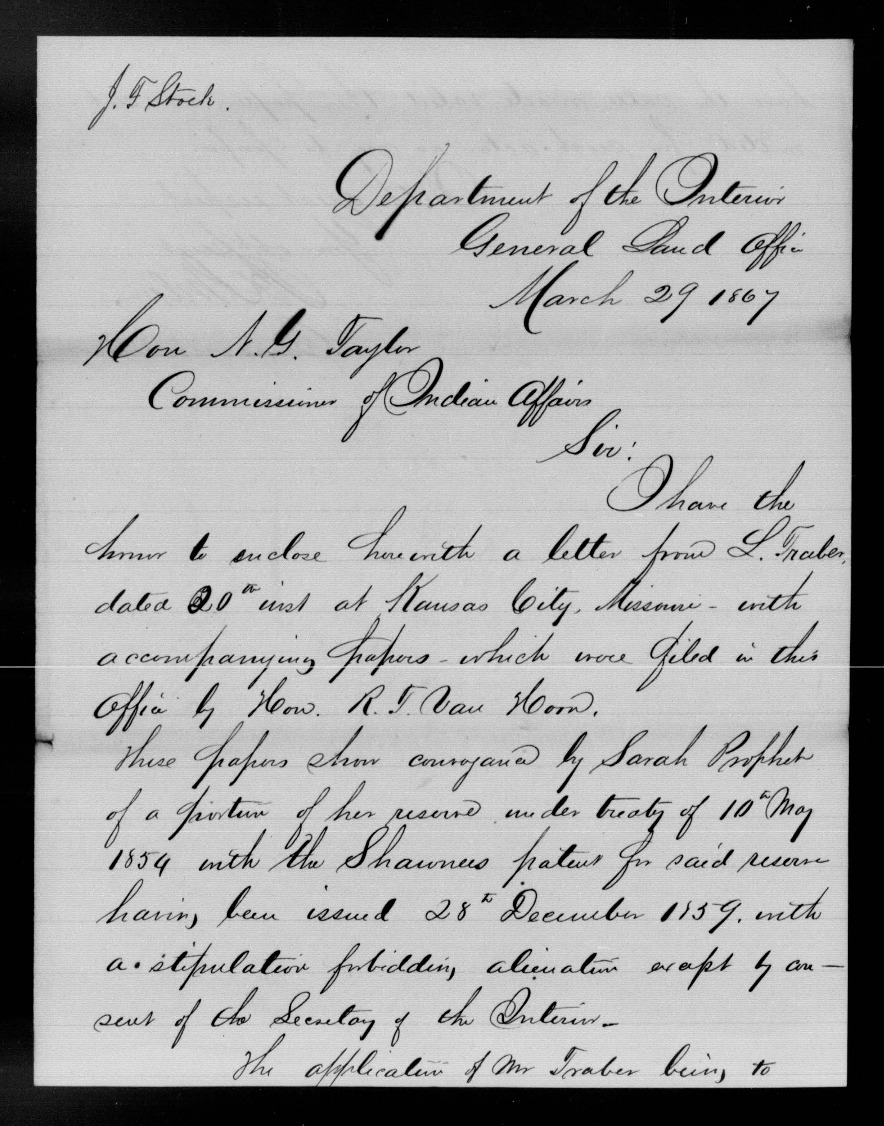 J. F Stock.
Department of the Interior
General Land Office
March 29 1867
Hon N. G. Taylor
Commissioner of Indian Affairs
Sir:
I have the
honor to enclose herewith a letter from L. Traber,
dated 20th inst at Kansas City, Missouri - with
accompanying papers - which were filed in this
Office by Hon. R. T. Van Horn.
These papers show conveyance by Sarah Prophet
of a portion of her reserve under treaty of 10th May
1854 with the Shawnees patent for said reserve
having been issued 28th December 1859. with
a stipulation forbidding alienation except by con-
sent of the Secretary of the Interior -
The application of Mr Traber being to